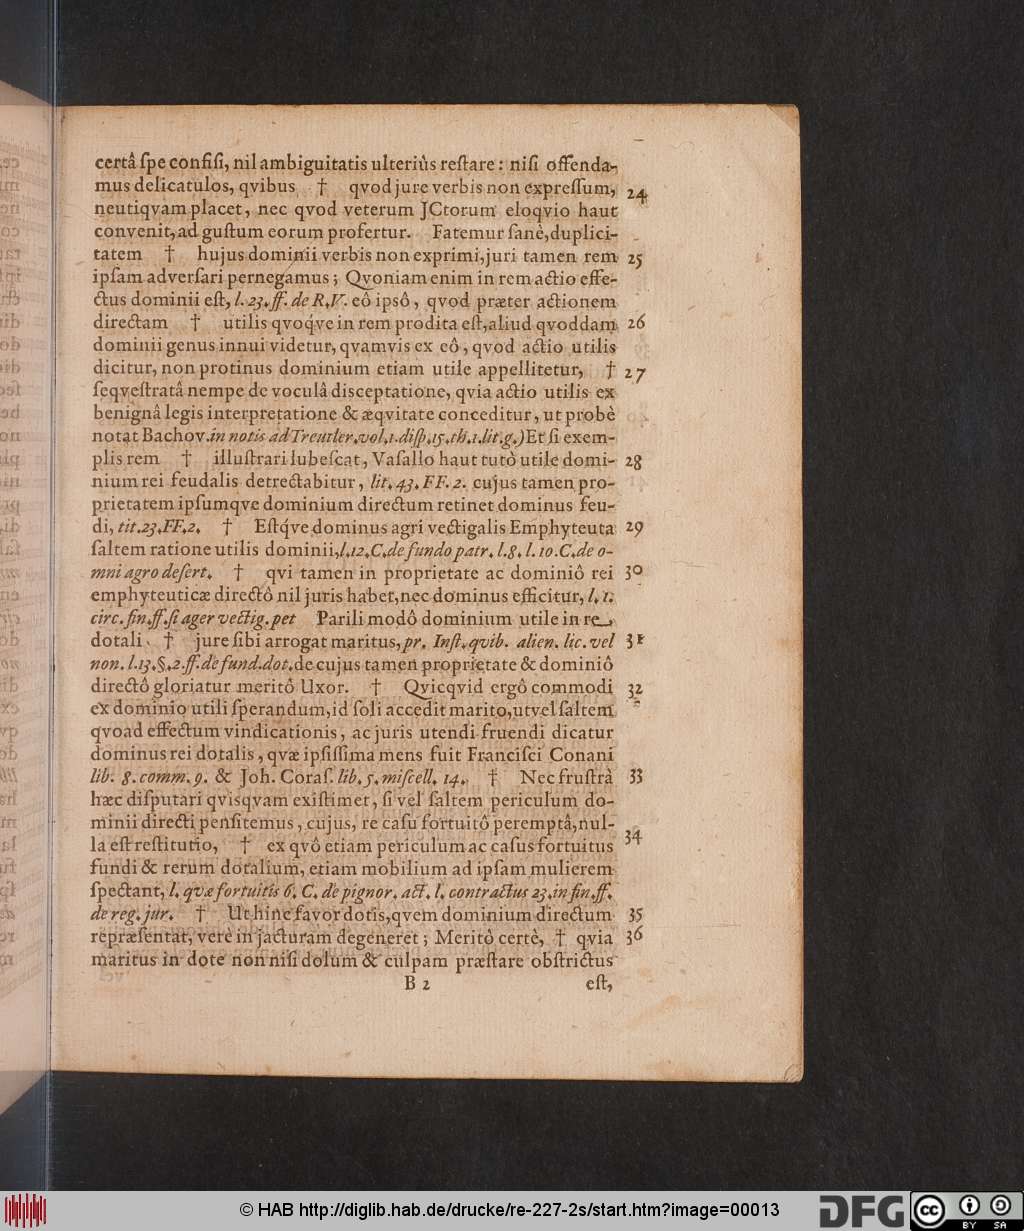 certâ ſpe confiſi, nil ambiguitatis ulteriùs reſtare: niſi offenda-
mus delicatulos, qvibus † qvod jure verbis non expreſſum, 24
neutiqvam placet, nec qvod veterum JCtorum eloqvio haut
convenit, ad guſtum eorum profertur. Fatemur ſanè, duplici-
tatem † hujus dominii verbis non exprimi, juri tamen rem 25
ipſam adverſari pernegamus; Qvoniam enim in rem actio effe-
ctus dominii eſt, l. 23. ff. de R. V. eô ipsô, qvod præter actionem
directam † utilis qvoq́ve in rem prodita eſt, aliud qvoddam 26
dominii genus innui videtur, qvamvis ex eô, qvod actio utilis
dicitur, non protinus dominium etiam utile appellitetur, † 27
ſeqveſtratâ nempe de voculâ disceptatione, qvia actio utilis ex
benignâ legis interpretatione & æqvitate conceditur, ut probè
notat Bachov. in notis ad Treutler. vol. 1. diſp. 15. th. 1. lit. g.) Et ſi exem-
plis rem † illuſtrari lubeſcat, Vaſallo haut tutò utile domi- 28
nium rei feudalis detrectabitur, lit. 43. FF. 2. cujus tamen pro-
prietatem ipſumqve dominium directum retinet dominus feu-
di, tit. 23. FF. 2. † Eſtq́ve dominus agri vectigalis Emphyteuta 29
ſaltem ratione utilis dominii, l. 12. C. de fundo patr. l. 8. l. 10. C. de o-
mni agro deſert. † qvi tamen in proprietate ac dominiô rei 30
emphyteuticæ directô nil juris habet, nec dominus efficitur, l. 1.
circ. fin. ff. ſi ager vectig. pet Parili modô dominium utile in re
dotali † jure ſibi arrogat maritus, pr. Inſt. qvib. alien. lic. vel 31
non. l. 13. §. 2. ff. de fund. dot. de cujus tamen proprietate & dominiô
directô gloriatur meritô Uxor. † Qvicqvid ergô commodi 32
ex dominio utili ſperandum, id ſoli accedit marito, ut vel ſaltem
qvoad effectum vindicationis, ac juris utendi fruendi dicatur
dominus rei dotalis, qvæ ipſiſſima mens fuit Franciſci Conani
lib. 8. comm. 9. & Joh. Coraſ. lib. 5. miſcell. 14. † Nec fruſtrà 33
hæc diſputari qvisqvam exiſtimet, ſi vel ſaltem periculum do-
minii directi penſitemus, cujus, re caſu fortuitô peremptâ, nul-
la eſt reſtitutio, † ex qvô etiam periculum ac caſus fortuitus 34
fundi & rerum dotalium, etiam mobilium ad ipſam mulierem
ſpectant, l. qvæ fortuitis 6. C. de pignor. act. l. contractus 23. in fin. ff.
de reg. jur. † Ut hinc favor dotis, qvem dominium directum 35
repræſentat, verè in jacturam degeneret; Meritô certè, † qvia 36
maritus in dote non niſi dolum & culpam præſtare obſtrictus
B 2 eſt,
© HAB http://diglib.hab.de/drucke/re-227-2s/start.htm?image=00013
DFG cc BY SA